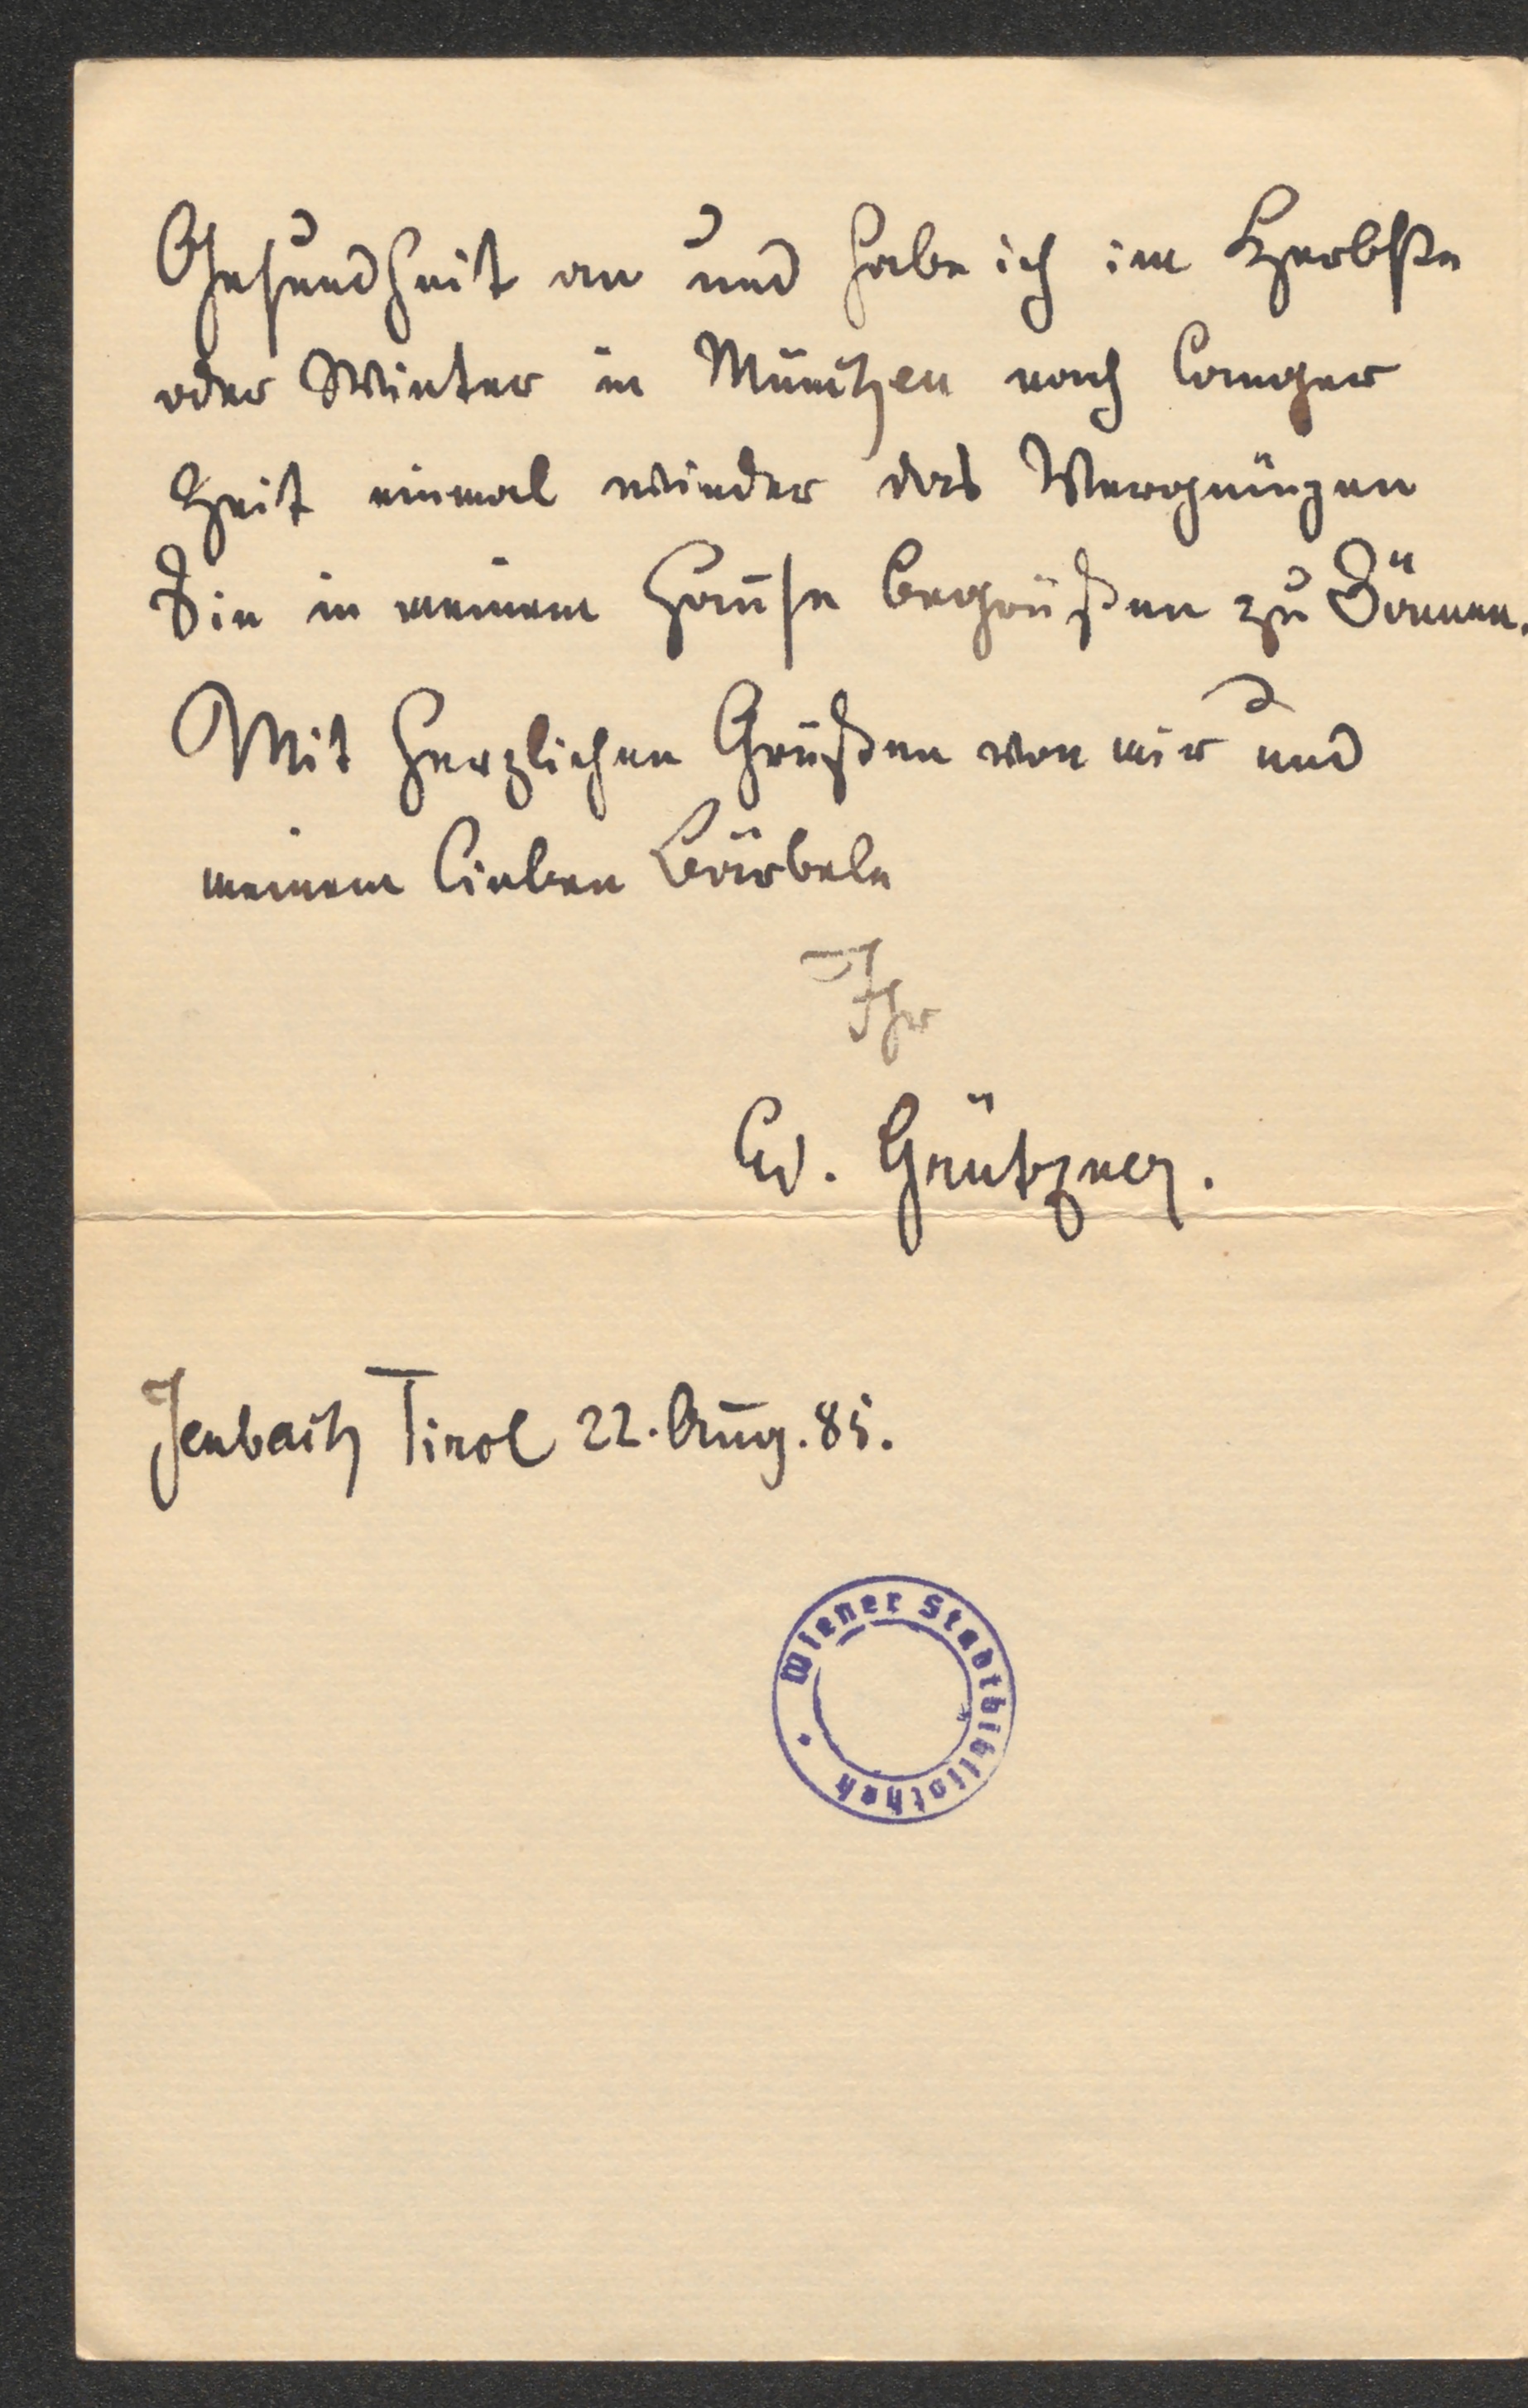 Gesundheit an und habe ich im Herbste
oder Winter in München nach langer
Zeit einmal wieder das Vergnügen
Sie in meinem Hause begrüßen zu können.
Mit herzlichen Grüßen von mir und
meinem lieben Bärbele
Ihr
Ed. Grützner.
Jenbach Tirol 22. Aug. 85.
Wiener Stadtbibliothek